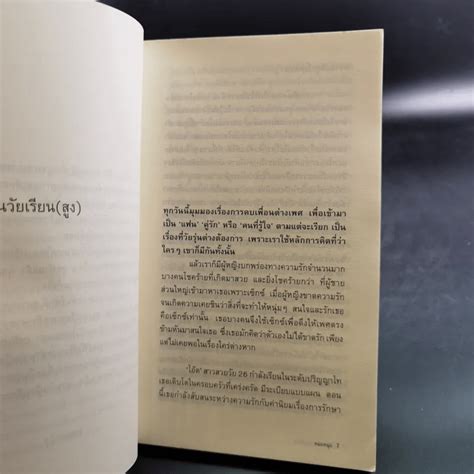 นวัยเรียน(สูง)
ทุกวันนี้มุมมองเรื่องการคบเพื่อนต่างเพศ เพื่อเข้ามา
เป็น 'แฟน' 'คู่รัก' หรือ 'คนที่รู้ใจ' ตามแต่จะเรียก เป็น
เรื่องที่วัยรุ่นต่างต้องการ เพราะเราใช้หลักการคิดที่ว่า
ใครๆ เขาก็มีกันทั้งนั้น
แล้วเราก็มีผู้หญิงบกพร่องทางความรักจำนวนมาก
บางคนโชคร้ายที่เกิดมาสวย และยิ่งโชคร้ายกว่า ที่ผู้ชาย
ส่วนใหญ่เข้ามาหาเธอเพราะเซ็กซ์ เมื่อผู้หญิงขาดความรัก
จนเกิดความเคยชินว่าสิ่งที่จะทำให้หนุ่มๆ สนใจและรักเธอ
คือเซ็กซ์เท่านั้น เธอบางคนจึงใช้เซ็กซ์เพื่อดึงให้เพศตรง
ข้ามหันมาสนใจเธอ ซึ่งเธอมักคิดว่าตัวเองไม่ได้ขาดรัก เพียง
แต่ไม่เคยพอในเรื่องใคร่ต่างหาก
'โอ๋ต' สาวสวยวัย 26 กำลังเรียนในระดับปริญญาโท
เธอเติบโตในครอบครัวที่เคร่งครัด มีระเบียบแบบแผน ตอน
นี้เธอกำลังสับสนระหว่างความรักกับค่านิยมเรื่องการรักษา
3